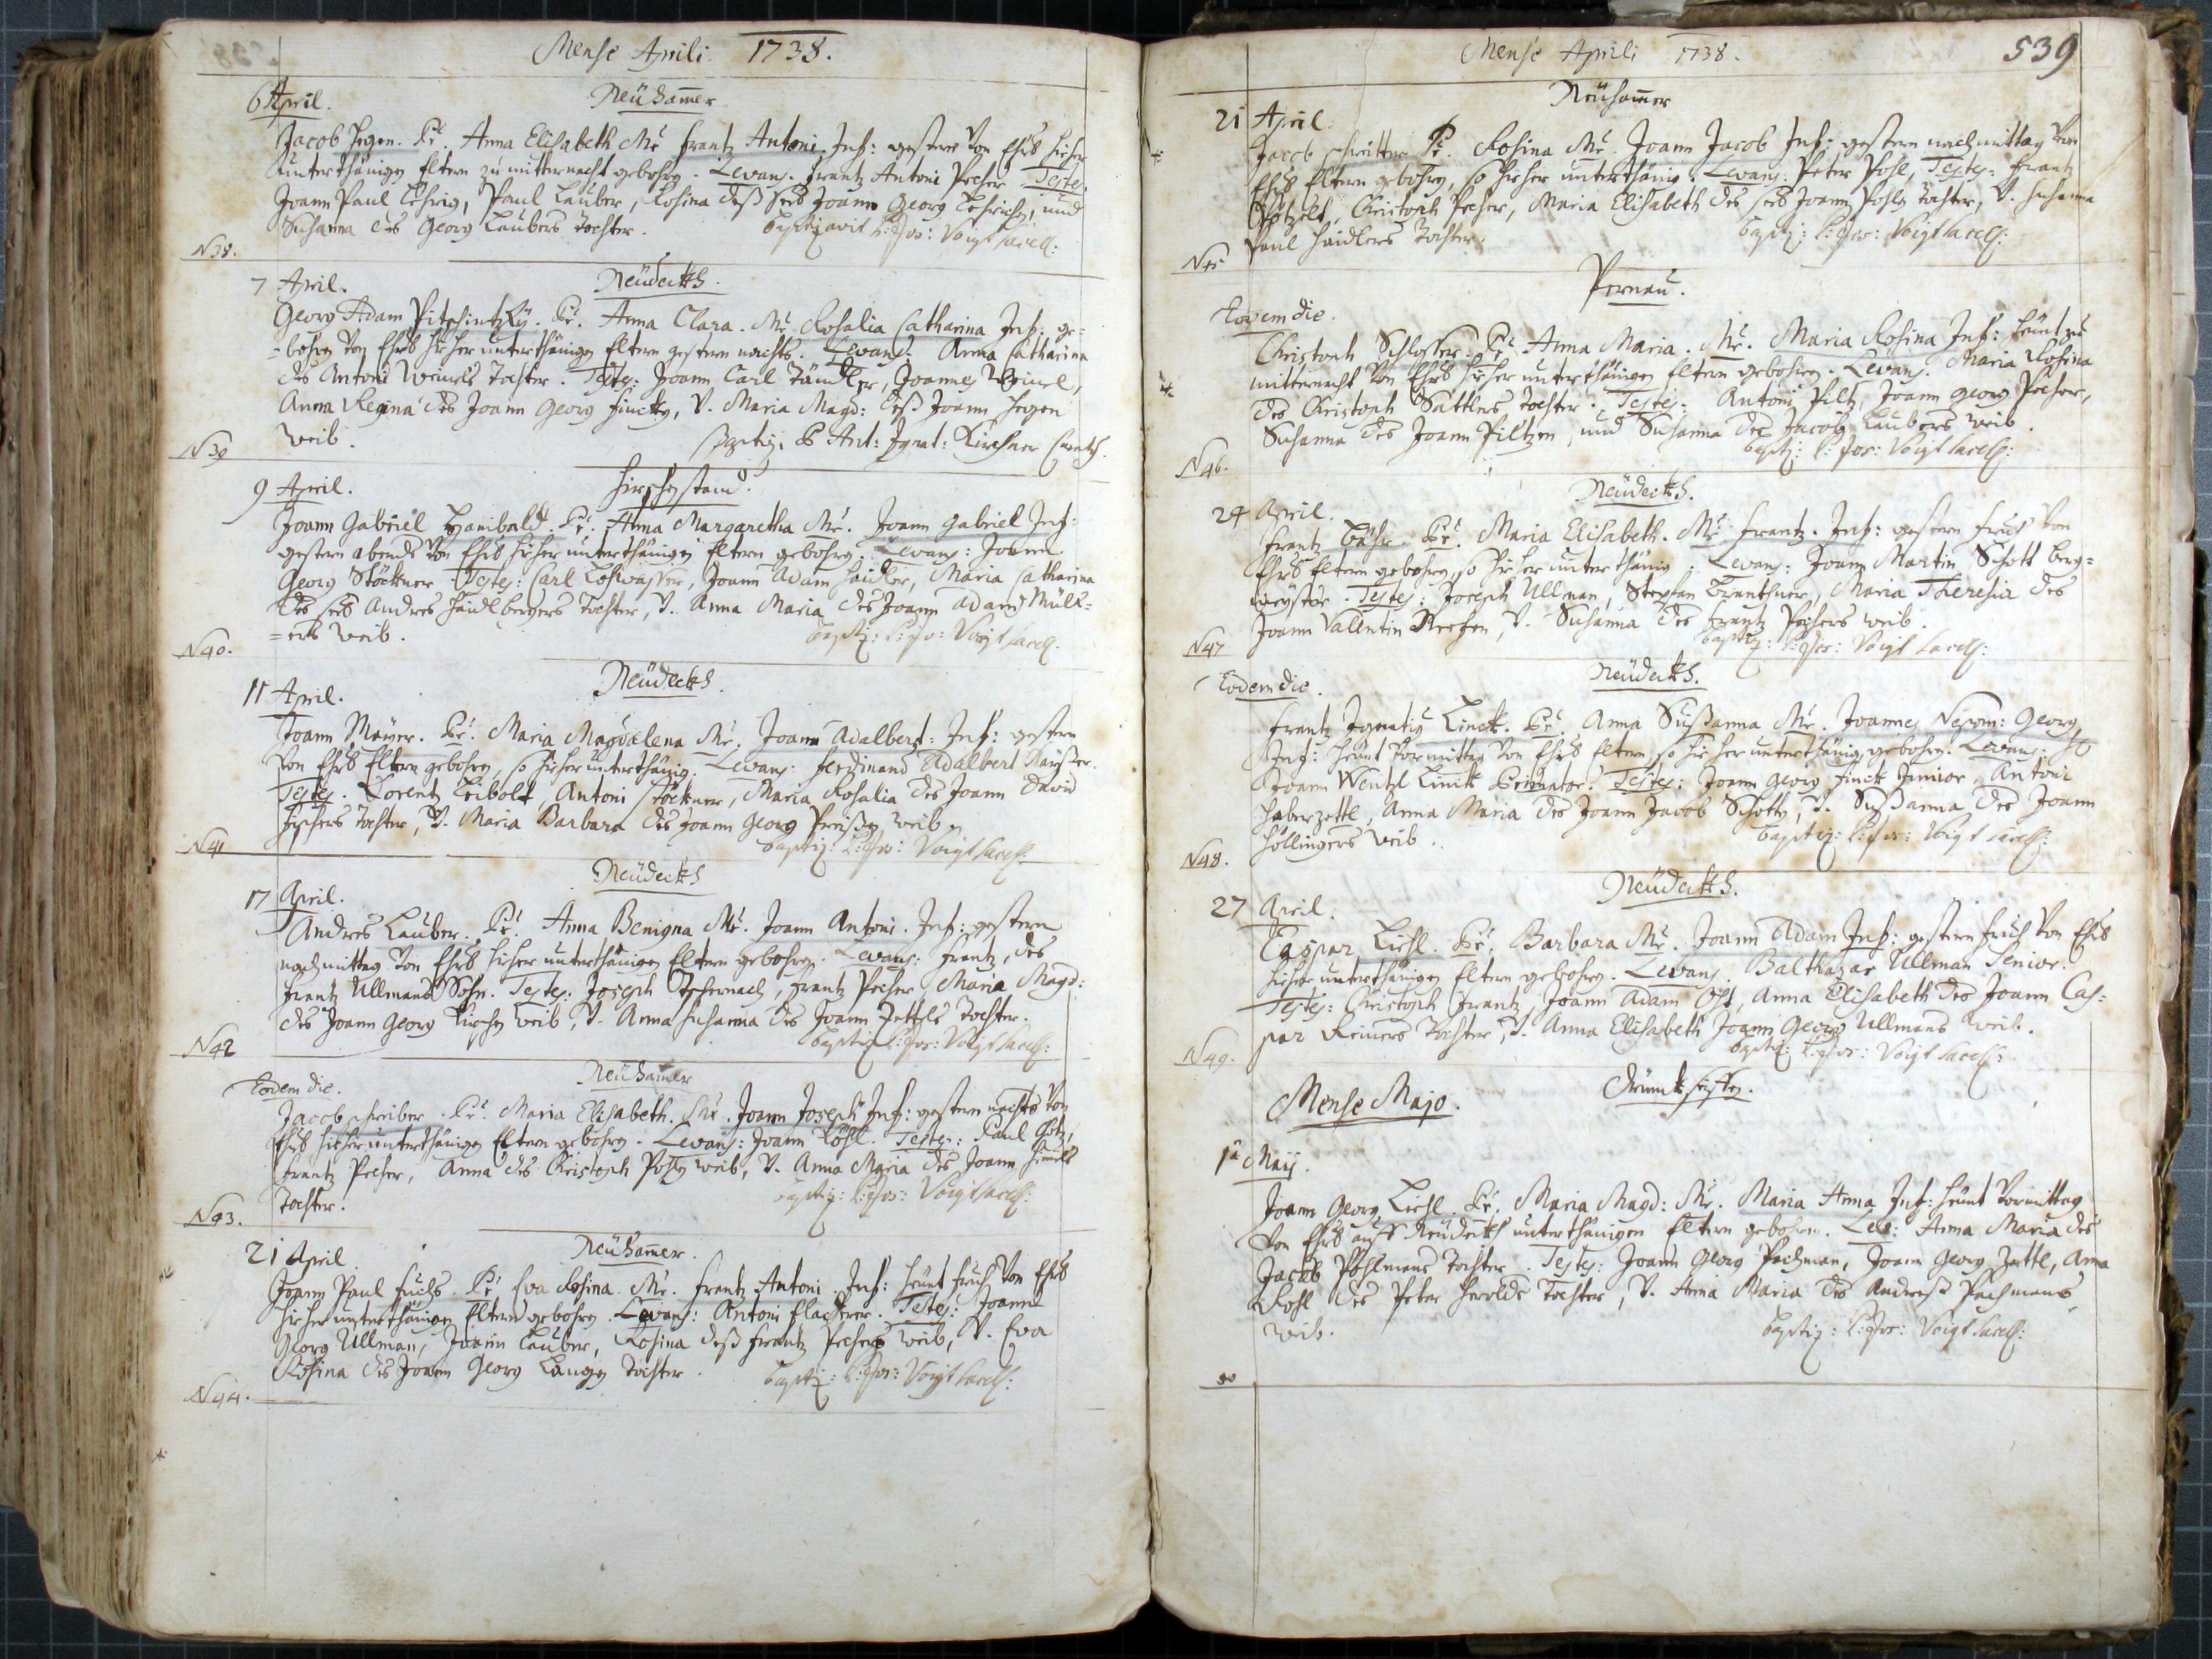 Mense Aprili 1738.
6 April. Neühamer
Jacob Hegen. Pr. Anna Elisabeth Mr. Frantz Antoni. Inf: gestern von Ehrs hieher
unterthänigen Eltern zu mitternacht gebohren. Levans. Frantz Antoni Pecher Testes.
Joann Paul Lehrig, Paul Lauber, Rosina deß Joann Georg, und
Susanna des Georg Laubers tochter. baptizavit P: Jos: Voigt Sacell:
N 38.
7 April. Neüdeckh.
Georg Adam Pitschintzky. Pr. Anna Clara. Mr. Rosalia Catharina Inf. ge=
=bohren von Ehrs hieher unterthänigen Eltern gestern nachts. Levans. Anna Catharina
des Antoni Weinels Tochter. Testes: Joann Carl Tändler, Joannes Weinel,
Anna Regina des Joann Georg Fincken, V. Maria Magd: deß Joann Hegen
Weib. baptiz. P Ant: Ignat: Kirchner
N 39
9 April. Hirschenstand.
Joann Gabriel Hambald. Pr. Anna Margaretha Mr. Joann Gabriel Inf:
gestern abends von Ehrs hieher unterthänigen Eltern gebohren. Levans: Joann
Georg Stöckner Testes: Carl Loßwasser, Joann Adam Haidler, Maria Catharina
des Andres Haidlbergers Tochter, V. Anna Maria des Joann Adam Müll=
=ers Weib. baptiz: P: Jos: Voigt Sacell.
N 40.
11 April. Neüdeckh.
Joann Mayer. Pr. Maria Magdalena Mr. Joann Adalbert: Inf: gestern
von Ehrs Eltern gebohren, so hieher unterthänig. Levans: Ferdinand Adalbert
Testes. Lorentz Leibolt, Antoni Stöckner, Maria Rosalia des Joann David
Fischers Tochter, V. Maria Barbara des Joann Georg Preißen weib.
N 41 baptiz: P: Jos: Voigt Sacell:
17 April. Neüdeckh
Andres Lauber. Pr. Anna Benigna Mr. Joann Antoni. Inf: gestern
nachmittag von Ehrs hieher unterthänigen Eltern gebohren. Levans: Frantz, des
Frantz Ullmans Sohn. Testes: Joseph Tschernach, Frantz Pecher Maria Magd:
des Joann Georg weib, V. Anna Susanna des Joann Zettls Tochter.
N 42 baptiz P: Jos: Voigt Sacell:
Eodem die. Neühamer
Jacob Schreiber. Pr. Maria Elisabeth. Mr. Joann Joseph Inf: gestern nachts von
Ehrs hieher unterthänigen Eltern gebohren. Levans: Joann Köhl. Testes: Paul Götz,
Frantz Pecher, Anna des Christoph Pohls weib, V. Anna Maria des Joann
Tochter. baptiz: P: Jos: Voigt Sacell:
N 43.
21 April Neühamer.
Joann Paul Fuchs. Pr. Eva Rosina. Mr. Frantz Antoni. Inf: heünt fruh von Ehrs
hieher unterthänigen Eltern gebohren. Levans: Antoni Flacherer. Testes: Joann
Georg Ullman, Joann Lauber, Rosina deß Frantz Pechers weib, V. Eva
Rosina des Joann Georg Langen Tochter. baptiz: P: Jos: Voigt Sacell:
N 44.
Mense Aprili 1738. 539
Neühamer
21 April
Jacob Pr. Rosina Mr. Joann Jacob Inf: gestern nachmittag von
Ehrs Eltern gebohren, so hieher unterthänig. Levans: Peter Pohl, Testes: Frantz
Christoph Pecher, Maria Elisabeth des Joann Pohls Tochter, V. Susanna
Paul Haidlers Tochter. baptiz: P: Jos: Voigt Sacell:
N 45
Pernau.
Eodem die.
Christoph Schlosser. Pr. Anna Maria. Mr. Maria Rosina Inf: heünt zu
mitternacht von Ehrs hieher unterthänigen Eltern gebohren. Levans. Maria Rosina
des Christoph Sattlers Tochter. Testes: Antoni Piltz, Joann Georg Pecher,
Susanna des Joann Piltzen, und Susanna des Jacob Laubers weib.
N 46. baptiz: P: Jos: Voigt Sacell:
Neüdeckh.
24 April.
Frantz Bähr. Pr. Maria Elisabeth. Mr. Frantz. Inf: gestern fruh von
Ehrs Eltern gebohren, so hieher unterthänig: Levans: Joann Martin Schott Berg=
meyster. Testes: Joseph Ullman, Stephan, Maria Theresia des
Joann Vallentin, V. Susanna des Frantz Pechers weib.
N 47 baptiz: P: Jos: Voigt Sacell:
Eodem die. Neüdeckh.
Frantz Ignatius Linck. Pr. Anna Sußanna Mr. Joannes Nepom: Georg
Inf: heünt vormittag von Ehrs Eltern, so hieher unterthänig gebohren. Levans: H
Joann Wentzl Linck. Testes: Joann Georg Finck Junior, Antoni
Haberzettl, Anna Maria des Joann Jacob Schotts, V. Sußanna des Joann
Höllingers weib. baptiz: P: Jos: Voigt Sacell:
N 48.
Neüdeckh.
27 April.
Caspar Liehl. Pr. Barbara Mr. Joann Adam Inf: gestern fruh von Ehrs
hieher unterthänigen Eltern gebohren. Levans. Balthazar Ullman Senior.
Testes: Christoph Frantz, Joann Adam, Anna Elisabeth des Joann Cas=
par Reiners Tochter, V. Anna Elisabeth Joann Georg Ullmans weib.
N 49. baptiz: P: Jos: Voigt Sacell:
Mense Majo.
1a Maij.
Joann Georg Liehl. Pr. Maria Magd: Mr. Maria Anna Inf: heünt vormittag
von Ehrs auf Neüdeckh unterthänigen Eltern gebohren. Lev: Anna Maria des
Jacob Pöhlmans Tochter. Testes: Joann Georg Pachman, Joann Georg Zettl, Anna
Rohl des Peter Herolds Tochter, V. Anna Maria des Andreß Pachmans
weib. baptiz: P: Jos: Voigt Sacell:
50